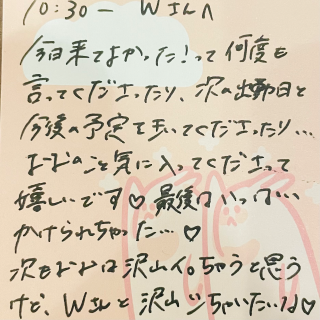 10:30ー Wさんへ
今日来てよかった!って何度も
言ってくださったり、次の出勤日と
今後の予定を歩いてくださったり…
なおのこと気に入ってくださって
嬉しいです♡ 最後はいっぱい
かけられちゃった…♡
次もなおは沢山イ。ちゃうと思う
けど、Wさんと沢山シちゃいたいな♡